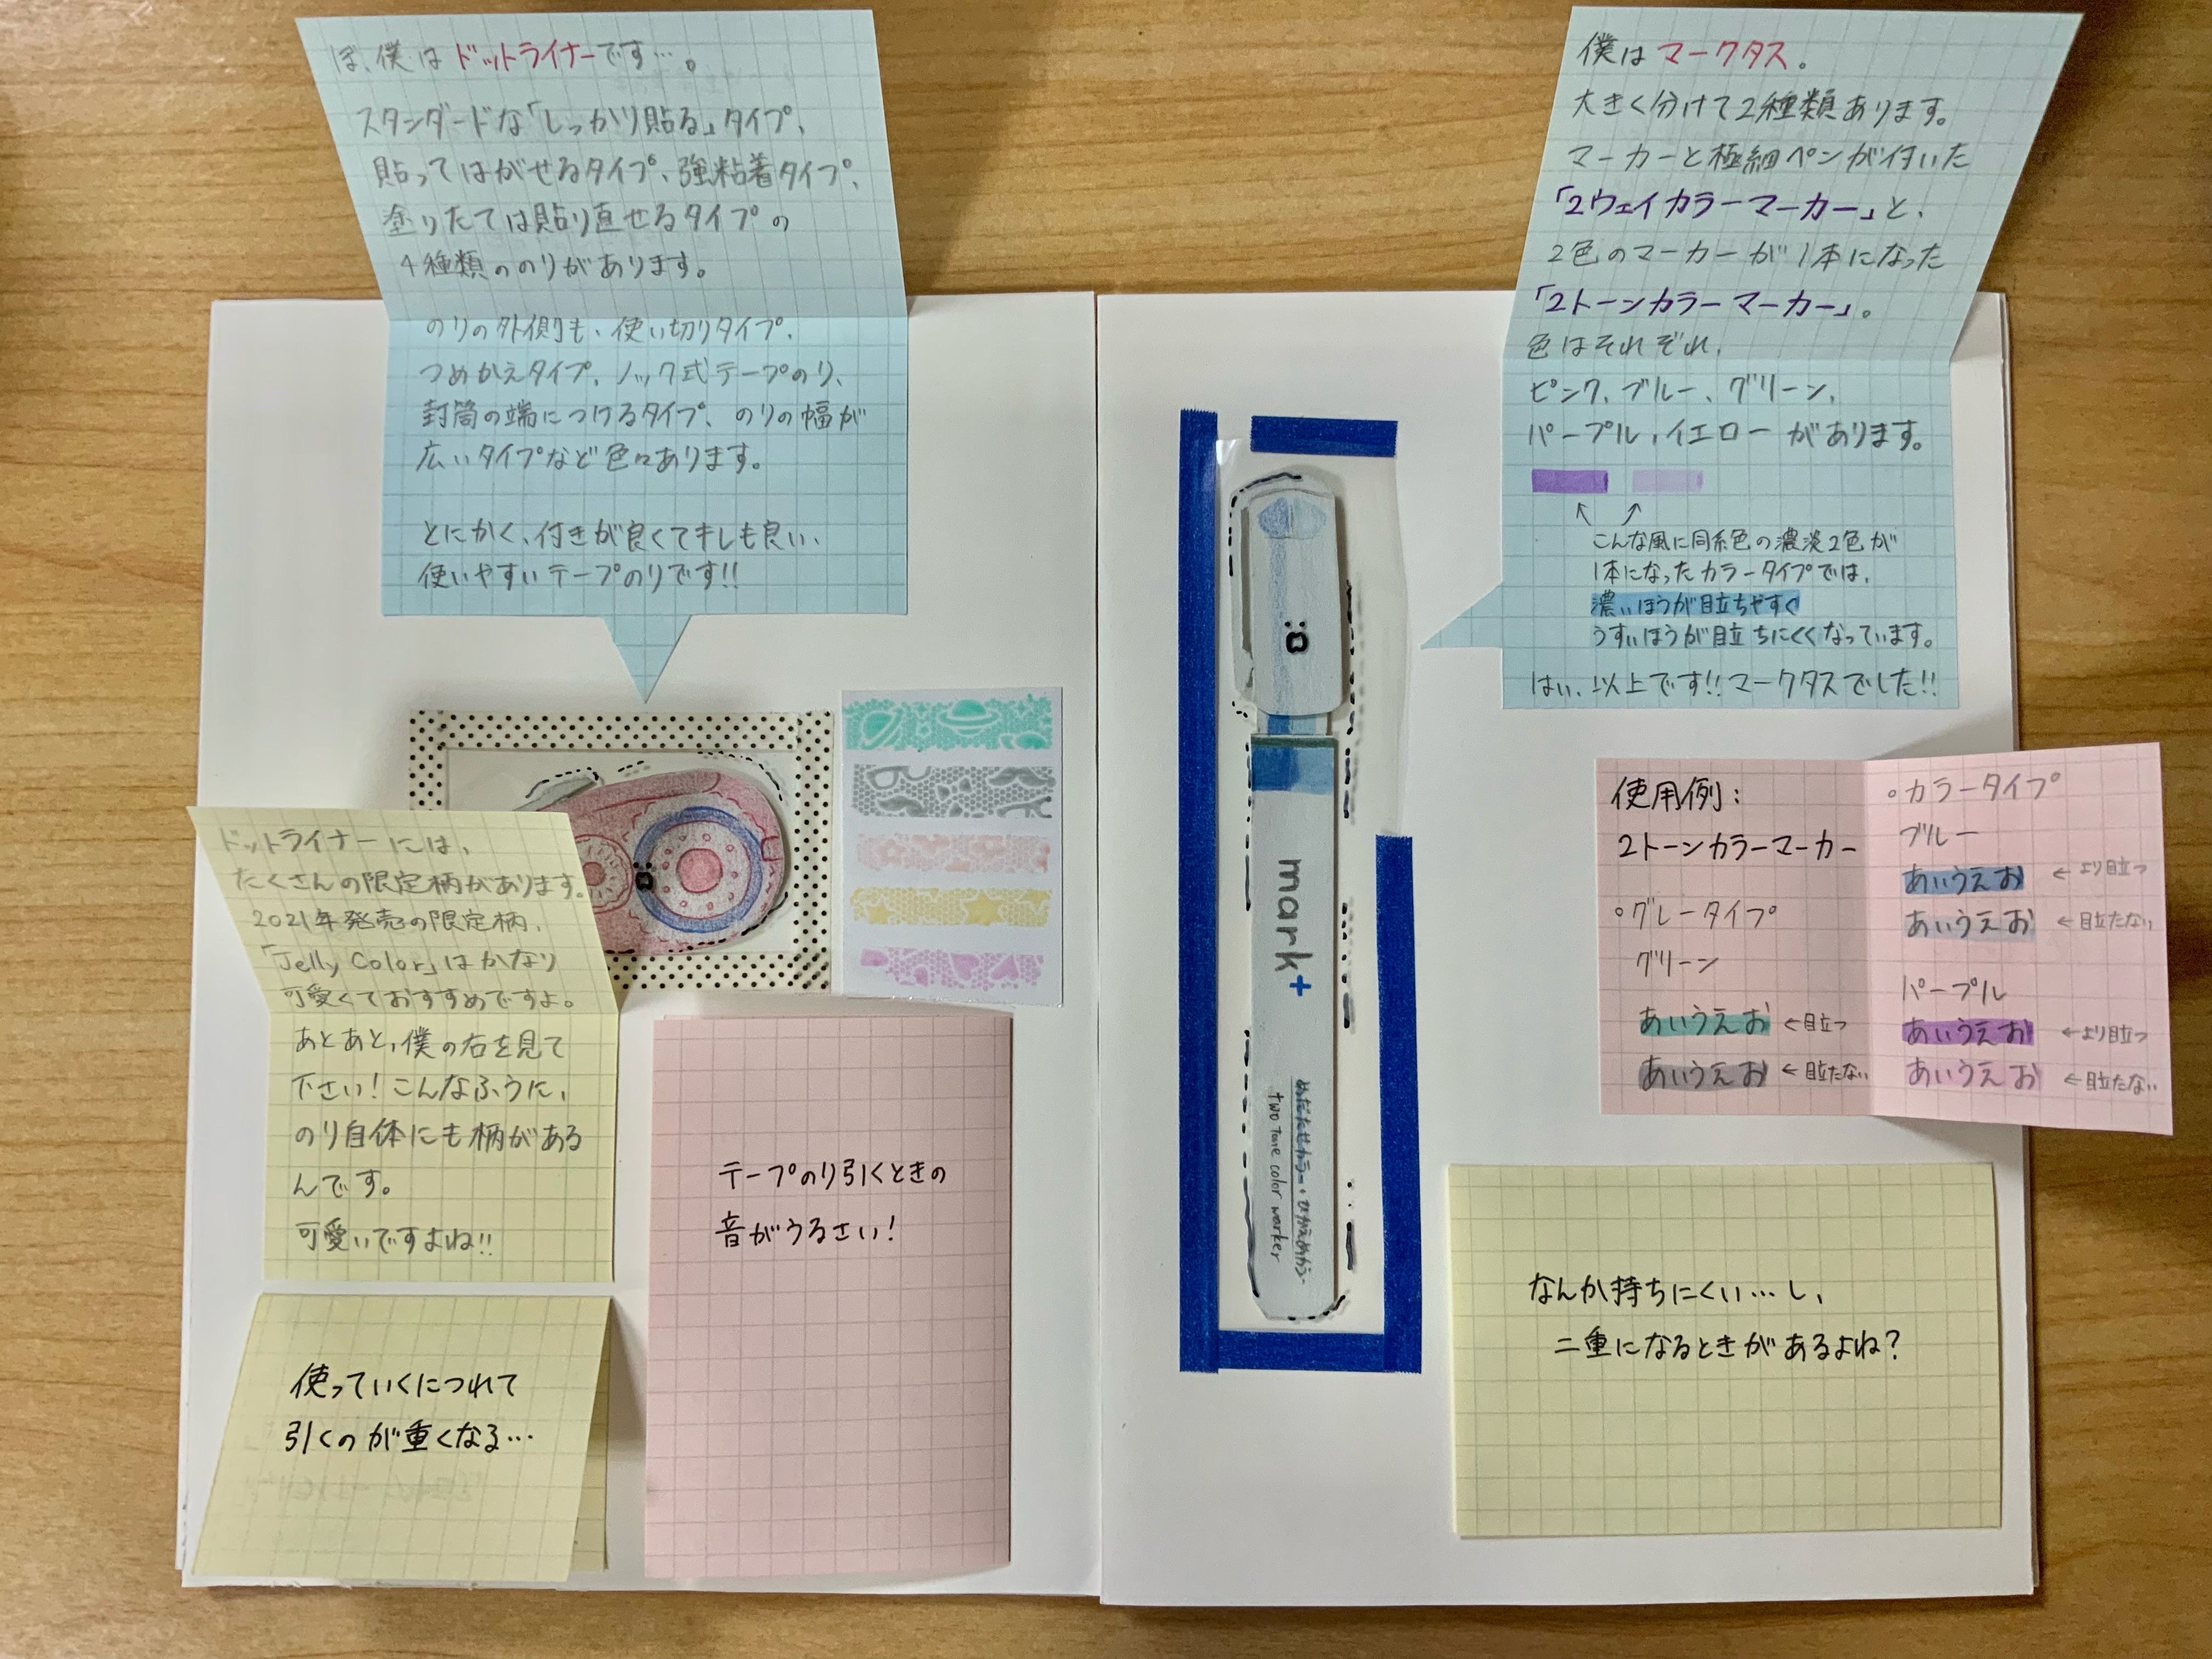 ぼ、僕はドットライナーです…。
スタンダードな「しっかり貼る」タイプ、
貼ってはがせるタイプ、強粘着タイプ、
塗りたては貼り直せるタイプの
4種類ののりがあります。
のりの外側も、使い切りタイプ、
つめかえタイプ、ノック式テープのり、
封筒の端につけるタイプ、のりの幅が
広いタイプなど色々あります。
とにかく、付きが良くてキレも良い、
使いやすいテープのりです!!
ドットライナーには、
たくさんの限定柄があります。
2021年発売の限定柄、
「Jelly Color」はかなり
可愛くておすすめですよ。
あとあと、僕の右を見て
下さい!こんなふうに、
のり自体にも柄がある
んです。
可愛いですよね!!
使っていくにつれて
引くのが重くなる…
テープのり引くときの
音がうるさい!
僕はマークタス。
大きく分けて2種類あります。
マーカーと極細ペンが付いた
「2ウェイカラーマーカー」と、
2色のマーカーが1本になった
「2トーンカラーマーカー」。
色はそれぞれ、
ピンク、ブルー、グリーン、
パープル、イエローがあります。
こんな風に同系色の濃淡2色が
1本になったカラータイプでは、
濃いほうが目立ちやすく
うすいほうが目立ちにくくなっています。
はい、以上です!!マークタスでした!!
mark+
two Tone color marker
使用例:
2トーンカラーマーカー
○グレータイプ
グリーン
あいうえお ←目立つ
あいうえお ←目立たない
○カラータイプ
ブルー
あいうえお ←より目立つ
あいうえお ←目立たない
パープル
あいうえお ←より目立つ
あいうえお ←目立たない
なんか持ちにくい…し、
二重になるときがあるよね?